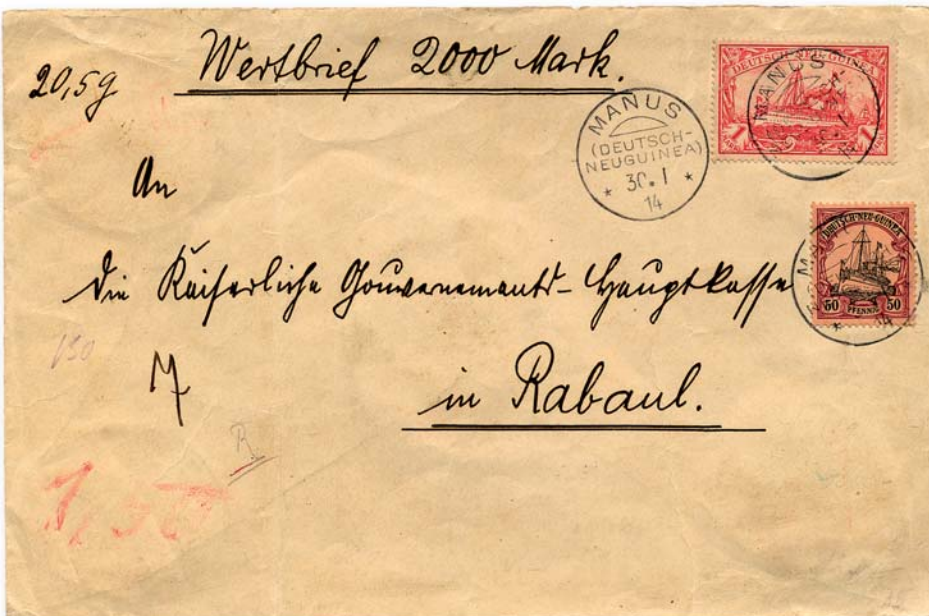 Wertbrief 2000 Mark.
20,5g
MANUS
(DEUTSCH-
NEUGUINEA)
* 30.1 *
14
DEUTSCH-NEU-GUINEA
MANUS
1
An
DEUTSCH-NEU-GUINEA
50 PFENNIG 50
14
die Kaiserliche Gouvernements-Hauptkasse
150
in Rabaul.
R
1,50